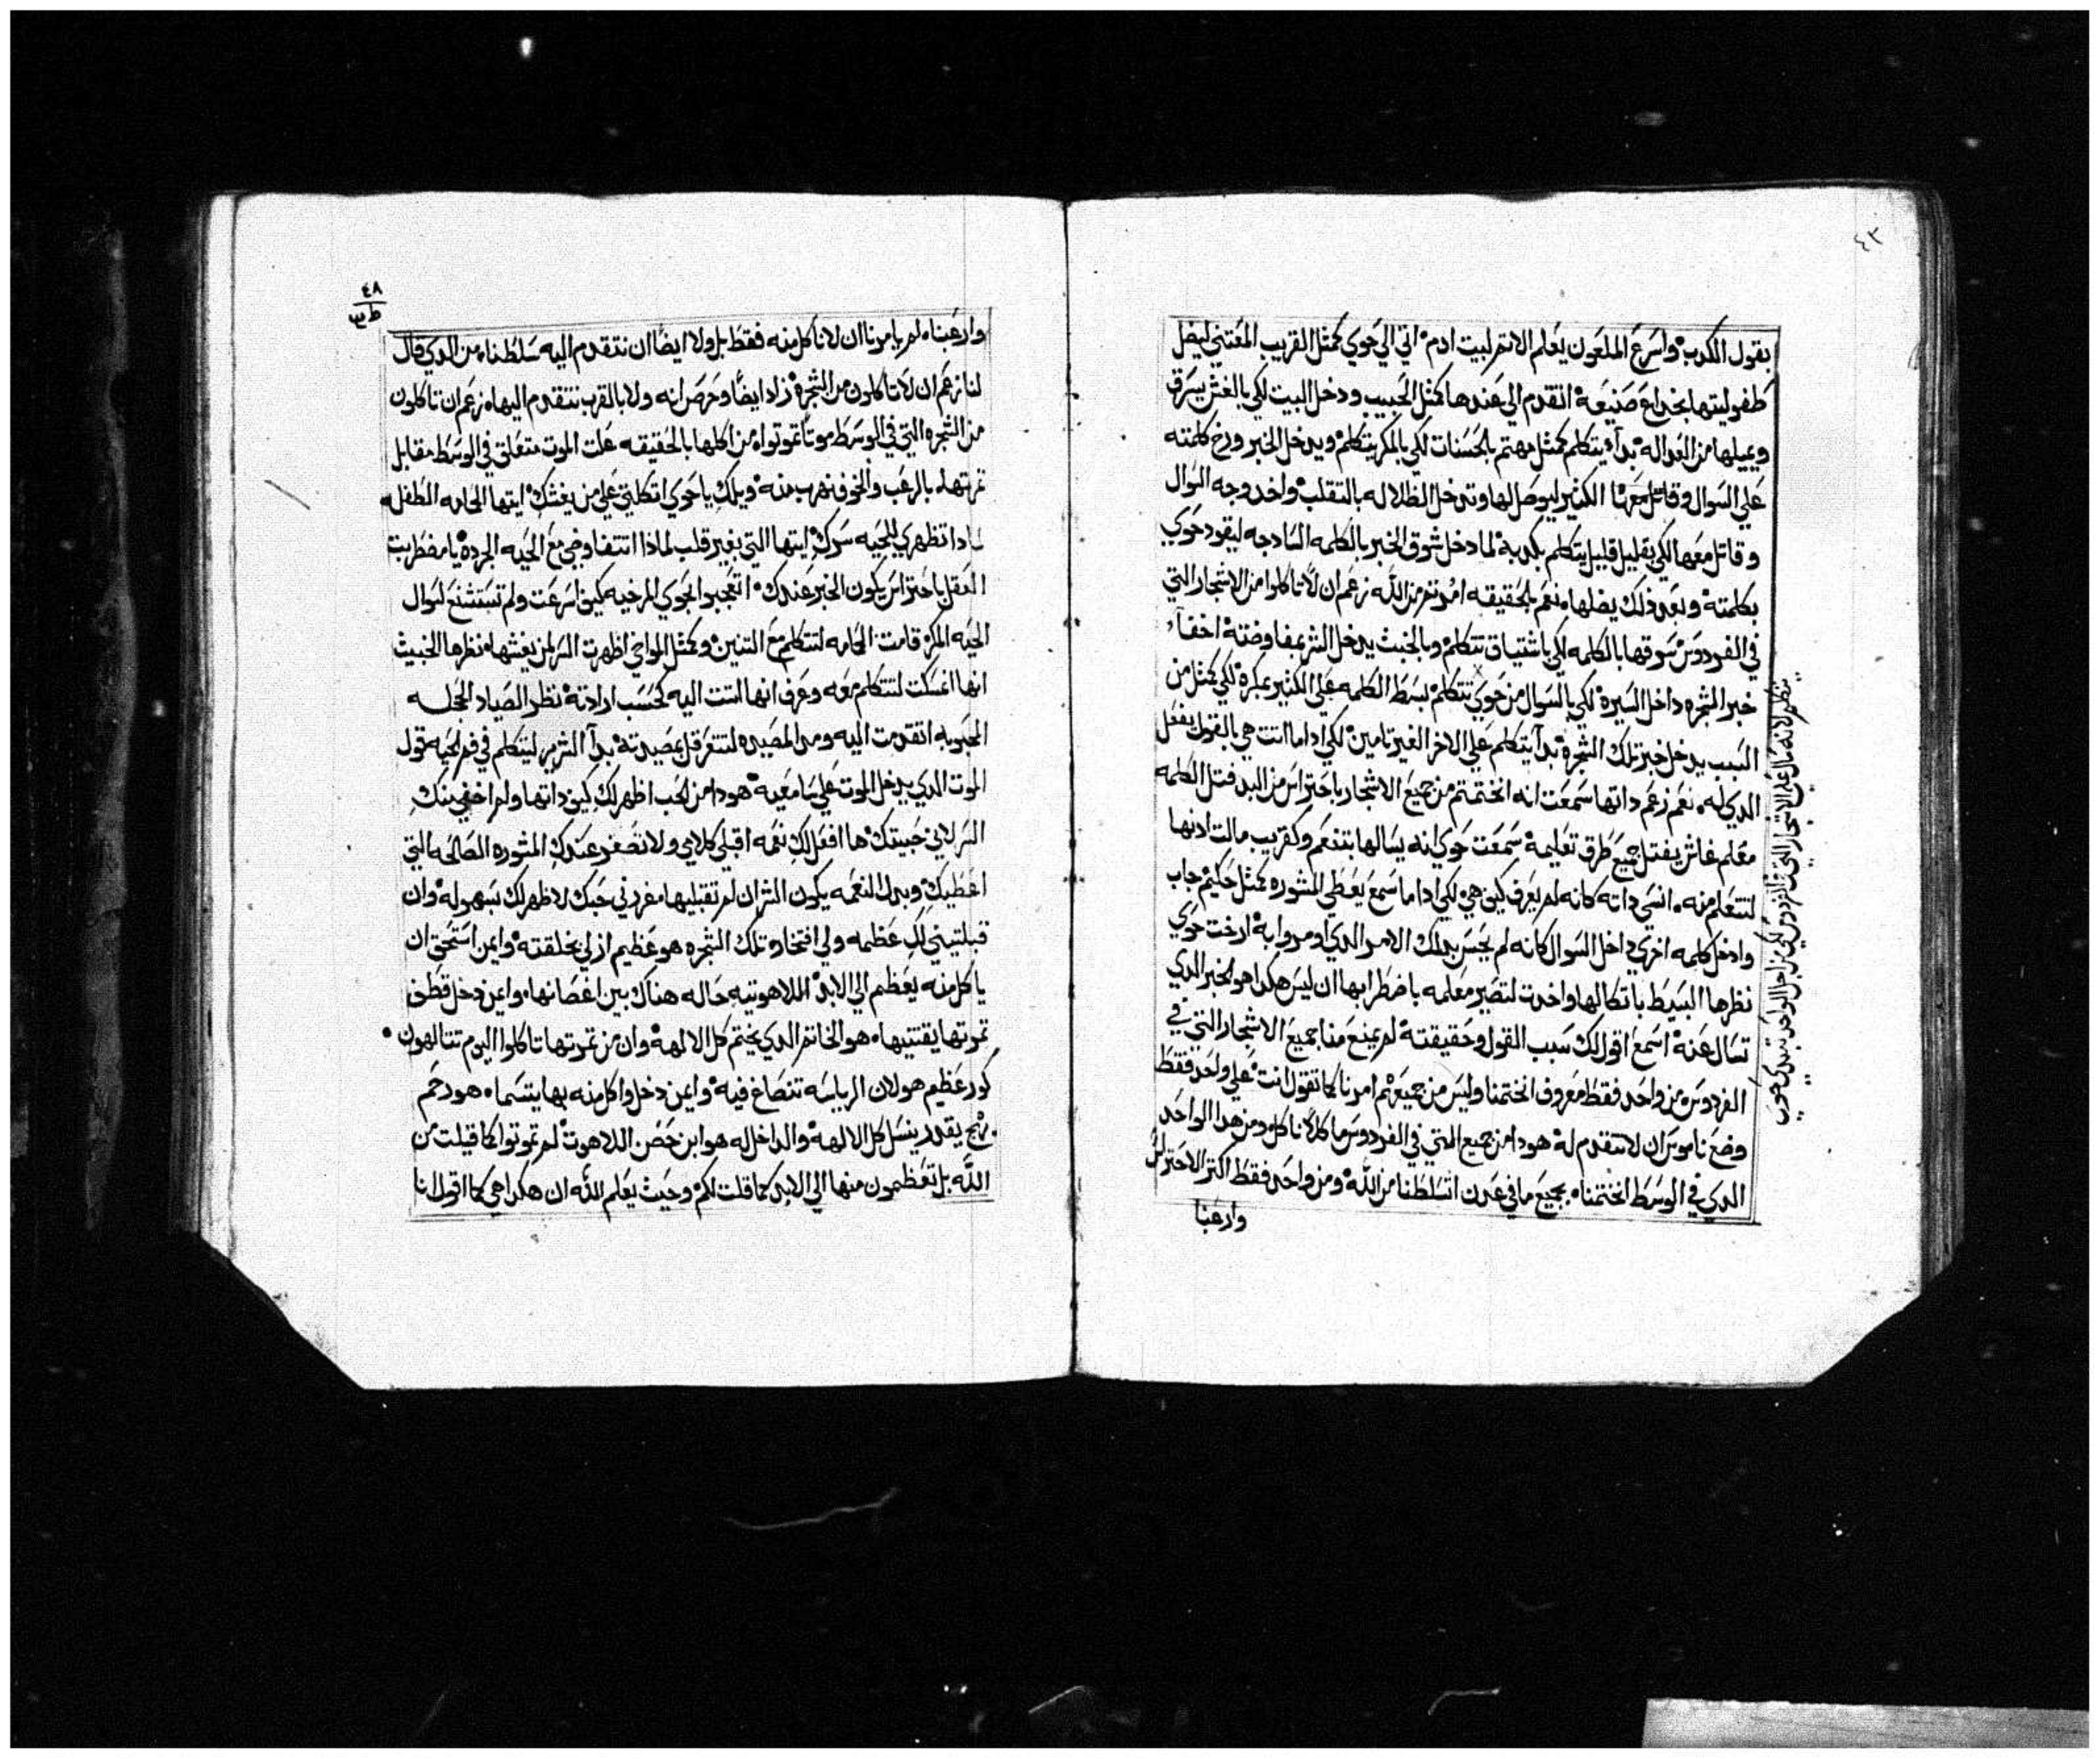 ٤٣
بقول الكدب واسرع الملعون يعلم الاتم لبيت ادم اتي الي حوي كمثل القريب المعتني ليضل
طفوليتها بخداع صنيعه اتقدم الي عندها كمثل الحبيب ودخل البيت لكي بالغش يسرق
ويميلها من العداله بدأ يتكلم كمثل مهتم بالحسنات لكي بالمكر يتكلم ويدخل الخبر ورخ كلمته
علي السوال وقاتل معها الكثير ليوصل لها وتدخل الظلاله بالتقلب واخد وجه السوال
وقاتل معها لكي بقليل قليل يتكلم بكدبة لما دخل شوق الخبر بالكلمه السادجه ليقود حوي
بكلمته وبعد ذلك يضلها نعم بالحقيقه امرتم من الله زعم ان لا تاكلوا من الاشجار التي
في الفردوس شوقها بالكلمه لكي باشتياق تتكلم وبالخبث يدخل الشر بمفاوضته اخفآ
خبر الشجره داخل السيرة لكي بالسوال من حوي تتكلم بسط الكلمه علي الكثير بمكره لكي كمثل من
السبب يدخل خبر تلك الشجرة بدأ يتكلم علي الاخر الغير تامين لكي اداما اتت هي بالقول يفعل
الدي له نعم زعم داتها سمعت انه اتختمتم من جميع الاشجار باحتراس من اليد فتل الكلمه
معلم غاش يفتل جميع طرق تعليمه سمعت حوي انه يسالها بتنعم وكقريب مالت ادنها
لتتعلم منه انسي داته كانه لم يعرف كيف هي لكي اداما سمع يعطي المشوره كمثل حكيم جاب
وادخل كلمه اخري داخل السوال كانه لم يحس بدلك الامر الدي اومروا به ارخت حوي
نظرها البسيط باتكالها واخدت لتصير معلمه باضطرابها ان ليس هكدا هو الخبر الدي
تسال عنه اسمع اقول لك سبب القول وحقيقته لم يمنع منا جميع الاشجار التي في
الفردوس من واحد فقط معروف اتختمنا وليس من جميعهم امرنا كما تقول انت علي واحد فقط
وضع ناموس ان لا نتقدم له هودا من جميع التي في الفردوس ماكلاً ناكل ومن هدا الواحد
الدي في الوسط اتختمنا بجميع ما في عدن اتسلطنا من الله ومن واحد فقط اكتر الاحتراس
وارعبنا
ينظر لانه سال علي الاشجار التي في الفردوس لكي من اجل الواحد تبتدي حوي
٤٨
وارعبنا لم يامرنا ان لا ناكل منه فقط بل ولا ايضاً ان نتقدم اليه سلطنا من الدي قال
لنا زعم ان لا تاكلون من الشجرة زاد ايضاً وحرص انه ولا بالقرب نتقدم اليها زعم ان تاكلون
من الشجره التي في الوسط موتاً تموتوا من اكلها بالحقيقه علت الموت متعلق في الوسط مقابل
تمرتها بالرعب والخوف نهرب منه ويلك يا حوي اتكلتي علي من يغشك ايتها الحامه الطفل
لمادا تظهري للحيه سرك ايتها التي بغير قلب لماذا اتتفاوضي مع الحيه الجرده يا مضطربت
العقل باحتراس يكون الخبر عندك اتعجبوا بحوي المرخيه كيف اسرعت ولم تستشنع لسوال
الحيه المكره قامت الحامه لتتكلم مع التنين وكمثل المواخي اظهرت السر لمن يغشها نظرها الخبيث
انها اغسكت لتتكلم معه وعرف انها اتت اليه كحسب ارادته نظر الصياد الحجله
المحبوبه اتقدمت اليه ومد المصيده لتتعرقل بمصيدته بدأ الشرير ليتكلم في فم الحيه قول
الموت الدي يدخل الموت علي سامعيه هودا من الحب اظهر لك كيف داتها ولم اخفي منك
السر لاني حبيتك ها افعل لك نعمه اقبلي كلامي ولا تصغر عندك المشوره الصالحه التي
اعطيك وبدل النعمه يكون الشر ان لم تقبليها مغردني حبك لاظهر لك بسهوله وان
قبلتيني لك عظمه ولي افتخار تلك الشجره هو عظيم ازلي بخلقته وايمن استحق ان
ياكل منه يعظم الي الابد اللاهوتيه حاله هناك بين اغصانها وايمن دخل قطف
تمرتها يقتنيها هو الخاتم الدي يختم كل الالهة وان من تمرتها تاكلوا اليوم تتالهون
كور عظيم هو لان الرياسه تنصاغ فيه وايمن دخل واكل منه بها يتسما هو رحم
بهج يقدر ينسل كل الالهة والداخل له هو ابن حضن اللاهوت لم تموتوا كما قيلت من
الله بل تعظمون منها الي الابد كما قلت لكم وحيث يعلم الله ان هكدا هي كما اقول انا